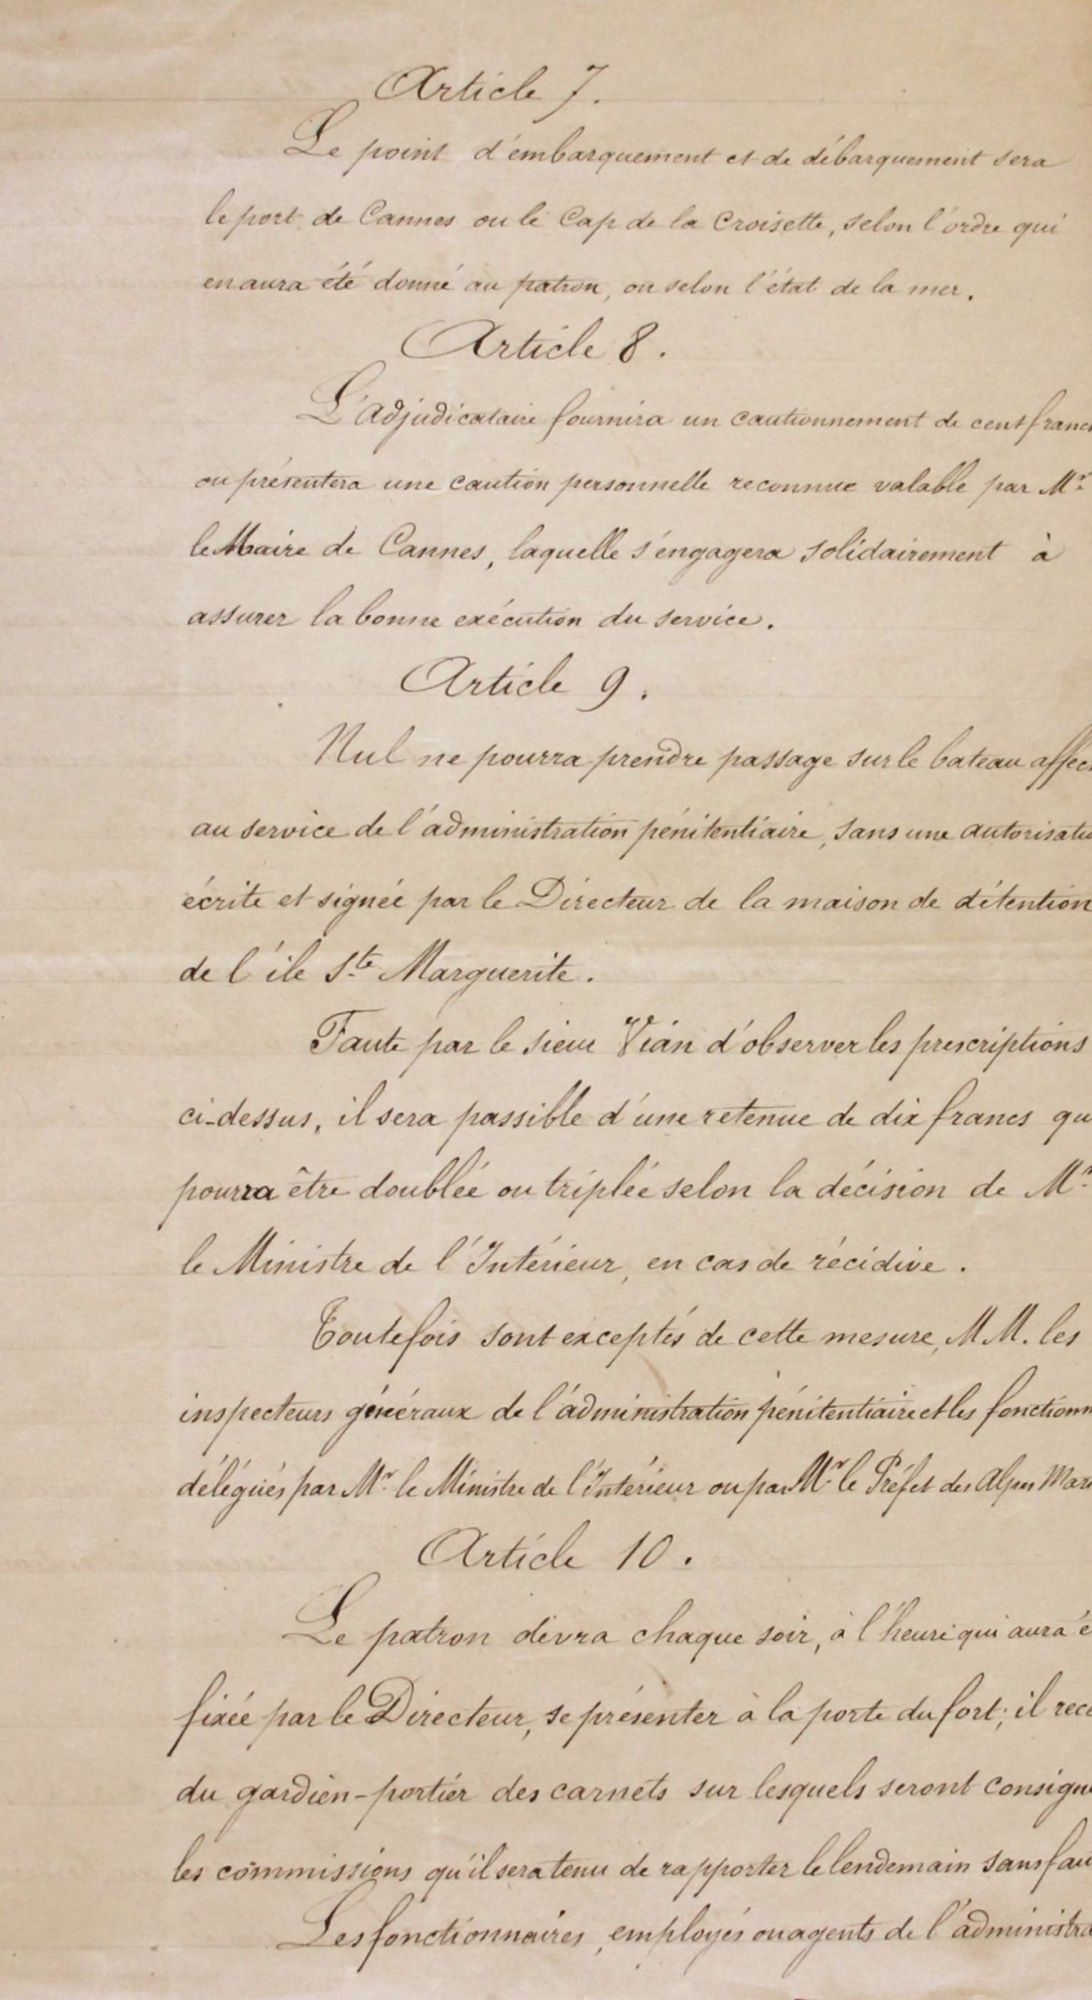 Article 7.
Le point d'embarquement et de débarquement sera
le port de Cannes ou le Cap de la Croisette, selon l'ordre qui
en aura été donné au patron, ou selon l'état de la mer.
Article 8.
L'adjudicataire fournira un cautionnement de cent franc
ou présentera une caution personnelle reconnue valable par Mr.
le Maire de Cannes, laquelle s'engagera solidairement à
assurer la bonne exécution du service.
Article 9.
Nul ne pourra prendre passage sur le bateau affec
au service de l'administration pénitentiaire, sans une autorisati
écrite et signée par le Directeur de la maison de détention
de l'île Ste Marguerite.
Faute par le sieur Vian d'observer les prescriptions
ci-dessus, il sera passible d'une retenue de dix francs qu
pourra être doublée ou triplée selon la décision de Mr.
le Ministre de l'Intérieur, en cas de récidive.
Toutefois sont exceptés de cette mesure, M.M. les
inspecteurs généraux de l'administration pénitentiaire et les fonctionn
délégués par Mr. le Ministre de l'Intérieur ou par Mr. le Préfet des Alpes Mari
Article 10.
Le patron devra chaque soir, à l'heure qui aura é
fixée par le Directeur, se présenter à la porte du fort; il rece
du gardien-portier des carnets sur lesquels seront consign
les commissions qu'il sera tenu de rapporter le lendemain sans fau
Les fonctionnaires, employés ou agents de l'administra